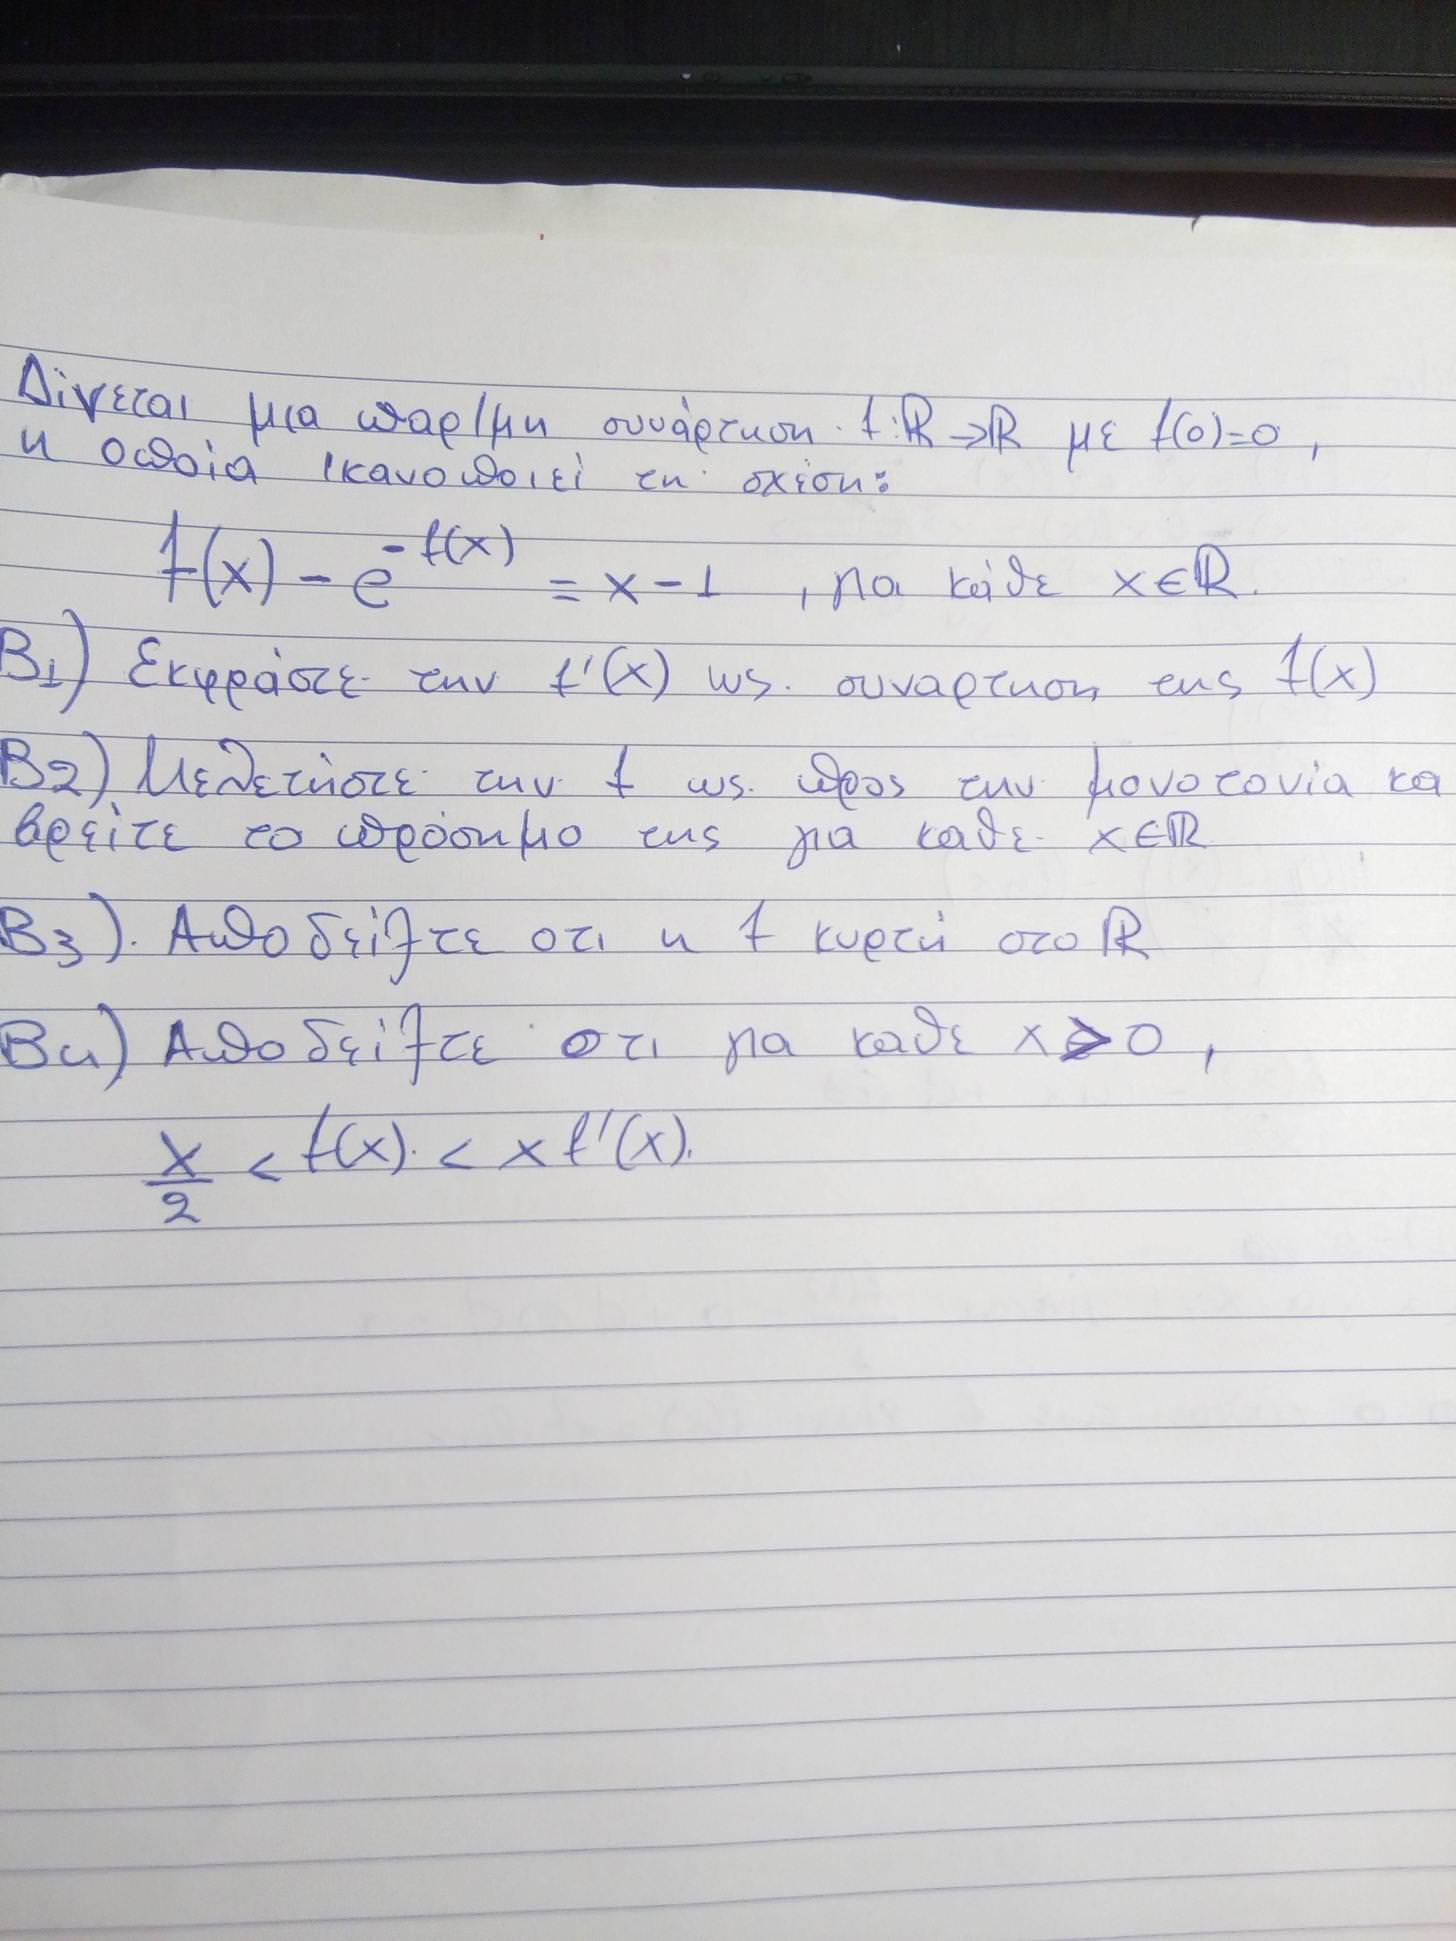 Δίνεται μια παρ/μη συνάρτηση f: ℝ→ℝ με f(0)=0,
η οποία ικανοποιεί τη σχέση:
f(x) - e^{-f(x)} = x-1 , για κάθε x∈ℝ.
Β1) Εκφράστε την f'(x) ως συναρτηση της f(x)
Β2) Μελετήστε την f ως προς την μονοτονία κα
βρείτε το πρόσημο της για καθε x∈ℝ
Β3). Αποδείξτε οτι η f κυρτή στο ℝ
Β4) Αποδείξτε οτι για καθε x>0,
x/2 < f(x) < x f'(x).